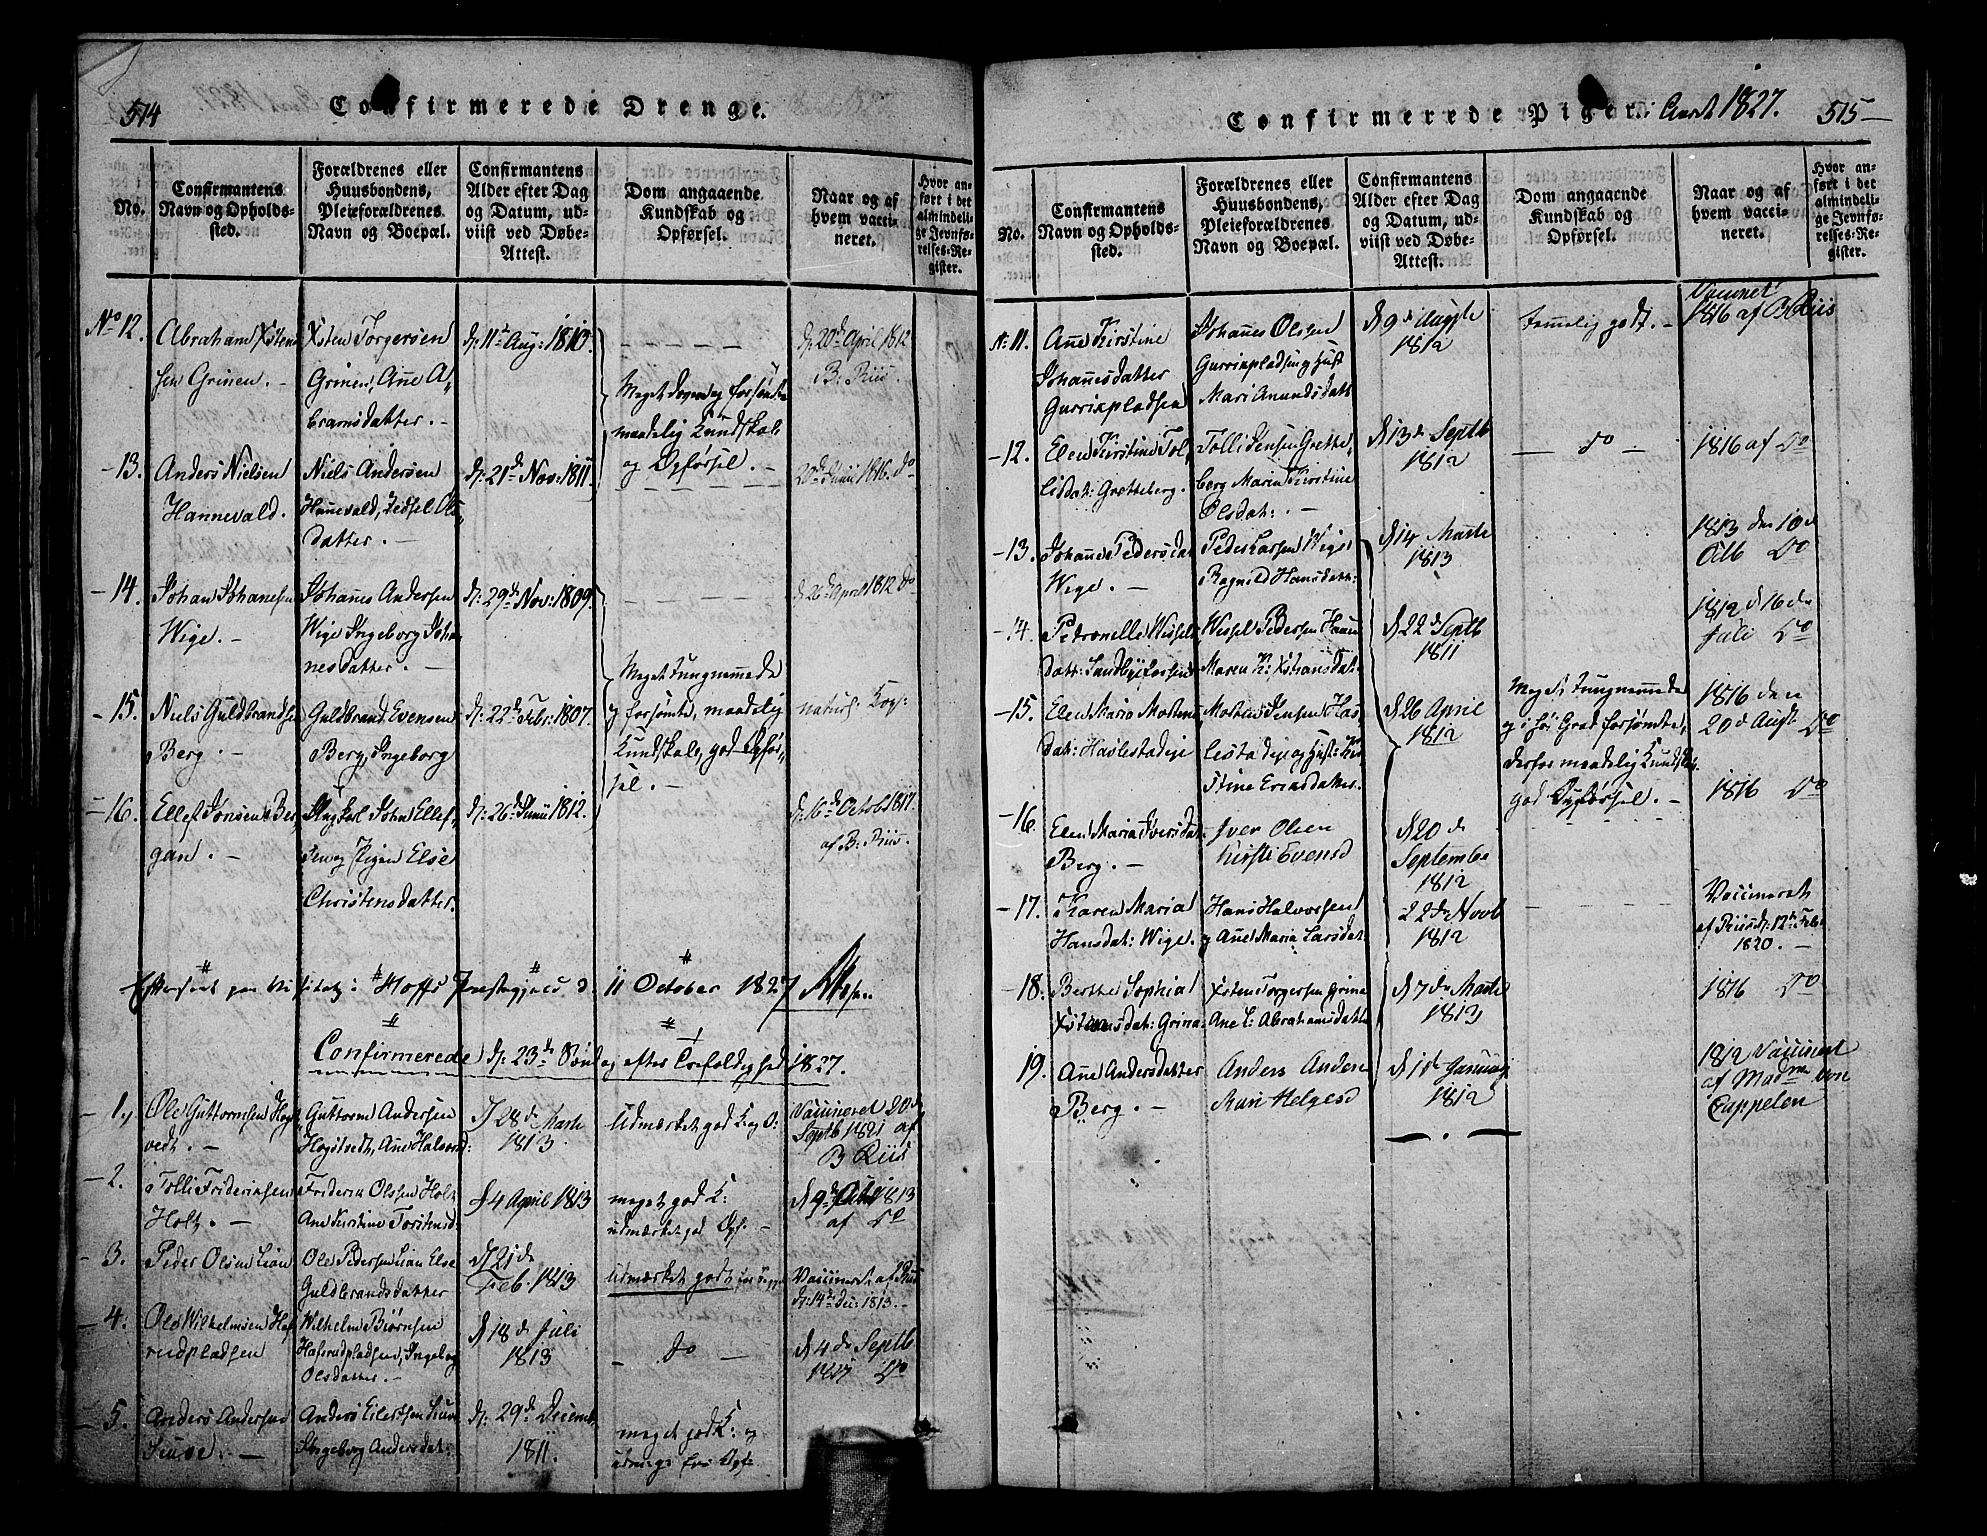 514
Confirmerede Drenge.
No.
Confirmantens
Navn og Opholds-
sted.
Forældrenes eller
Huusbondens,
Pleieforældrenes
Navn og Boepæl.
Confirmantens
Alder efter Dag
og Datum, ud-
viist ved Døbe-
Attest.
Dom angaaende
Kundskab og
Opførsel.
Naar og af
hvem vacci-
neret.
Hvor an-
ført i det
almindeli-
ge Jevnfø-
relses-Re-
gister.
No 12.
Abraham Xstens
sen Grinen. -
Xsten Torgersen
Grinen, Ane A-
bramsdatter. -
d: 11te Aug: 1810.
d: 20de April 1812
B: Riis.
Meget forsømte
maadelig Kundskab
og Opførsel. -
- 13.
Anders Nielsen
Hannevald.
Niels Andersen
Hannevald,
datter. -
d: 21de Nov: 1811.
20de Junii 1816. do
- 14.
Johan Johanesen
Wige. -
Johanes Andersen
Wige Ingeborg Joha-
nesdatter. -
d: 29de Nov: 1809.
d: 26de April 1812 do
Meget tungnemmede
og forsømte, maadelig
Kundskab, god Opfør-
sel. -
- 15.
Niels Guldbrands
Berg. -
Guldbrand Evensen
Berg, Ingeborg
d: 22de Febr: 1807.
naturl: Kop:
- 16.
Ellef Jonsen Ber
gan. -
Ungkarl John Ellef-
sen og Pigen Else
Christensdatter.
d: 26de Junii 1812.
d: 16de Octob 1817.
af B: Riis.
Efterseet paa Visitatz i Hoffs Præstegjæld d. 11 October 1827
Confirmerede d: 23de Sønd ag efter Trefoldighed 1827.
- 1.,
Ole Guttormsen Hogt
vedt. -
Guttorm Andersen
Hogtvedt, Ane Halvord:
d 28de Marti
1813.
Udmærket god K og O:
Vaccineret 20de
Septb 1821 af
B Riis
- 2.
Tolli Friderichsen
Holt. -
Friderich Olssen Holt
Ane Kirstine Torstensd
d 4 April 1813
meget god K:
udmærket god Opf. -
d 9de 1813
af do
- 3.
Peder Olsen Lian
Ole Pedersen Lian Else
Guldbrandsdatter
d 21de
Feb. 1813
Udmærket godt
Vaccineret af Riis
d: 14de Dec: 1813. -
- 4.
Ole Wilhelmsen Haf
rudpladsen
Wilhelm Biørnsen
Hafsrudpladsen, Ingeborg
Olsdatter. -
d 18de Juli
1813
- do -
d 4de Septb
1817 do
- 5.
Anders Andersen
Anders Eilertsen
Ingeborg Andersdat:
d: 29de Decemb
1811.
meget god K: og
Opf:
Confirmerede Piger i Aaret 1827.
515
No.
Confirmantens
Navn og Opholds-
sted.
Forældrenes eller
Huusbondens,
Pleieforældrenes
Navn og Boepæl.
Confirmantens
Alder efter Dag
og Datum, ud-
viist ved Døbe-
Attest.
Dom angaaende
Kundskab og
Opførsel.
Naar og af
hvem vacci-
neret.
Hvor an-
ført i det
almindeli-
ge Jevnfø-
relses-Re-
gister.
No 11.
Ane Kirstine
Johanesdatter
Gurrixpladsen
Johannes Olsen
Gurrixpladsen og Hust
Mari Amundsdatt
d 9de
1812
temmelig godt. -
1816 af B Riis
- 12.
Elen Kirstine Tol-
lisdat: Gretteberg.
Tolli Jensen Grette-
berg Maria Kirstine
Olsdat: . -
d 13de Septb
1812
- do -
1816 af do
- 13.
Johane Pedersdat
Wige. -
Peder Larsen Wige
Ragnild Hansdatt:
d 14 Marti
1813
1813 den 10de
do
- 14.
Petronelle Wissels
datt: Sandbyefossen
Wissel Pedersen
Maren K: Xstiansdat.
d 22de Septb
1811
1812 d 16de
Juli do
- 15.
Elen Maria Mortens
dat: Haslestadeje
Morten Jensen Has-
lestadeje og Hust: Kir
stine Ericsdatter.
d 26 April
1812
Meget tungnemmede
og i høi Grad forsømte,
derfor maadelig Kundskab,
god Opførsel. -
1816 den
20de Aust do
- 16.
Elen Maria Iversdat
Berg. -
Iver Olsen
Kirsti Evensd
d 20de
Septembe
1812
1816 do
- 17.
Karen Maria
Hansdat: Wige.
Hans Halvorsen
og Ane Maria Larsdat:
22de Novb
1812
Vaccineret
af Riis d: 12te Feb:
1820. -
- 18.
Berthe Sophia
Xstensdat: Grina
Xsten Torgersen Grina
Ane L: Abrahamsdatter
d 7de Marti
1813
1816 do
19.
Ane Andersdatter
Berg. -
Anders Anders
Kari Helgesd
d 1ste Januarj
1812
1812 Vaccineret
af Madme von
Cappelen